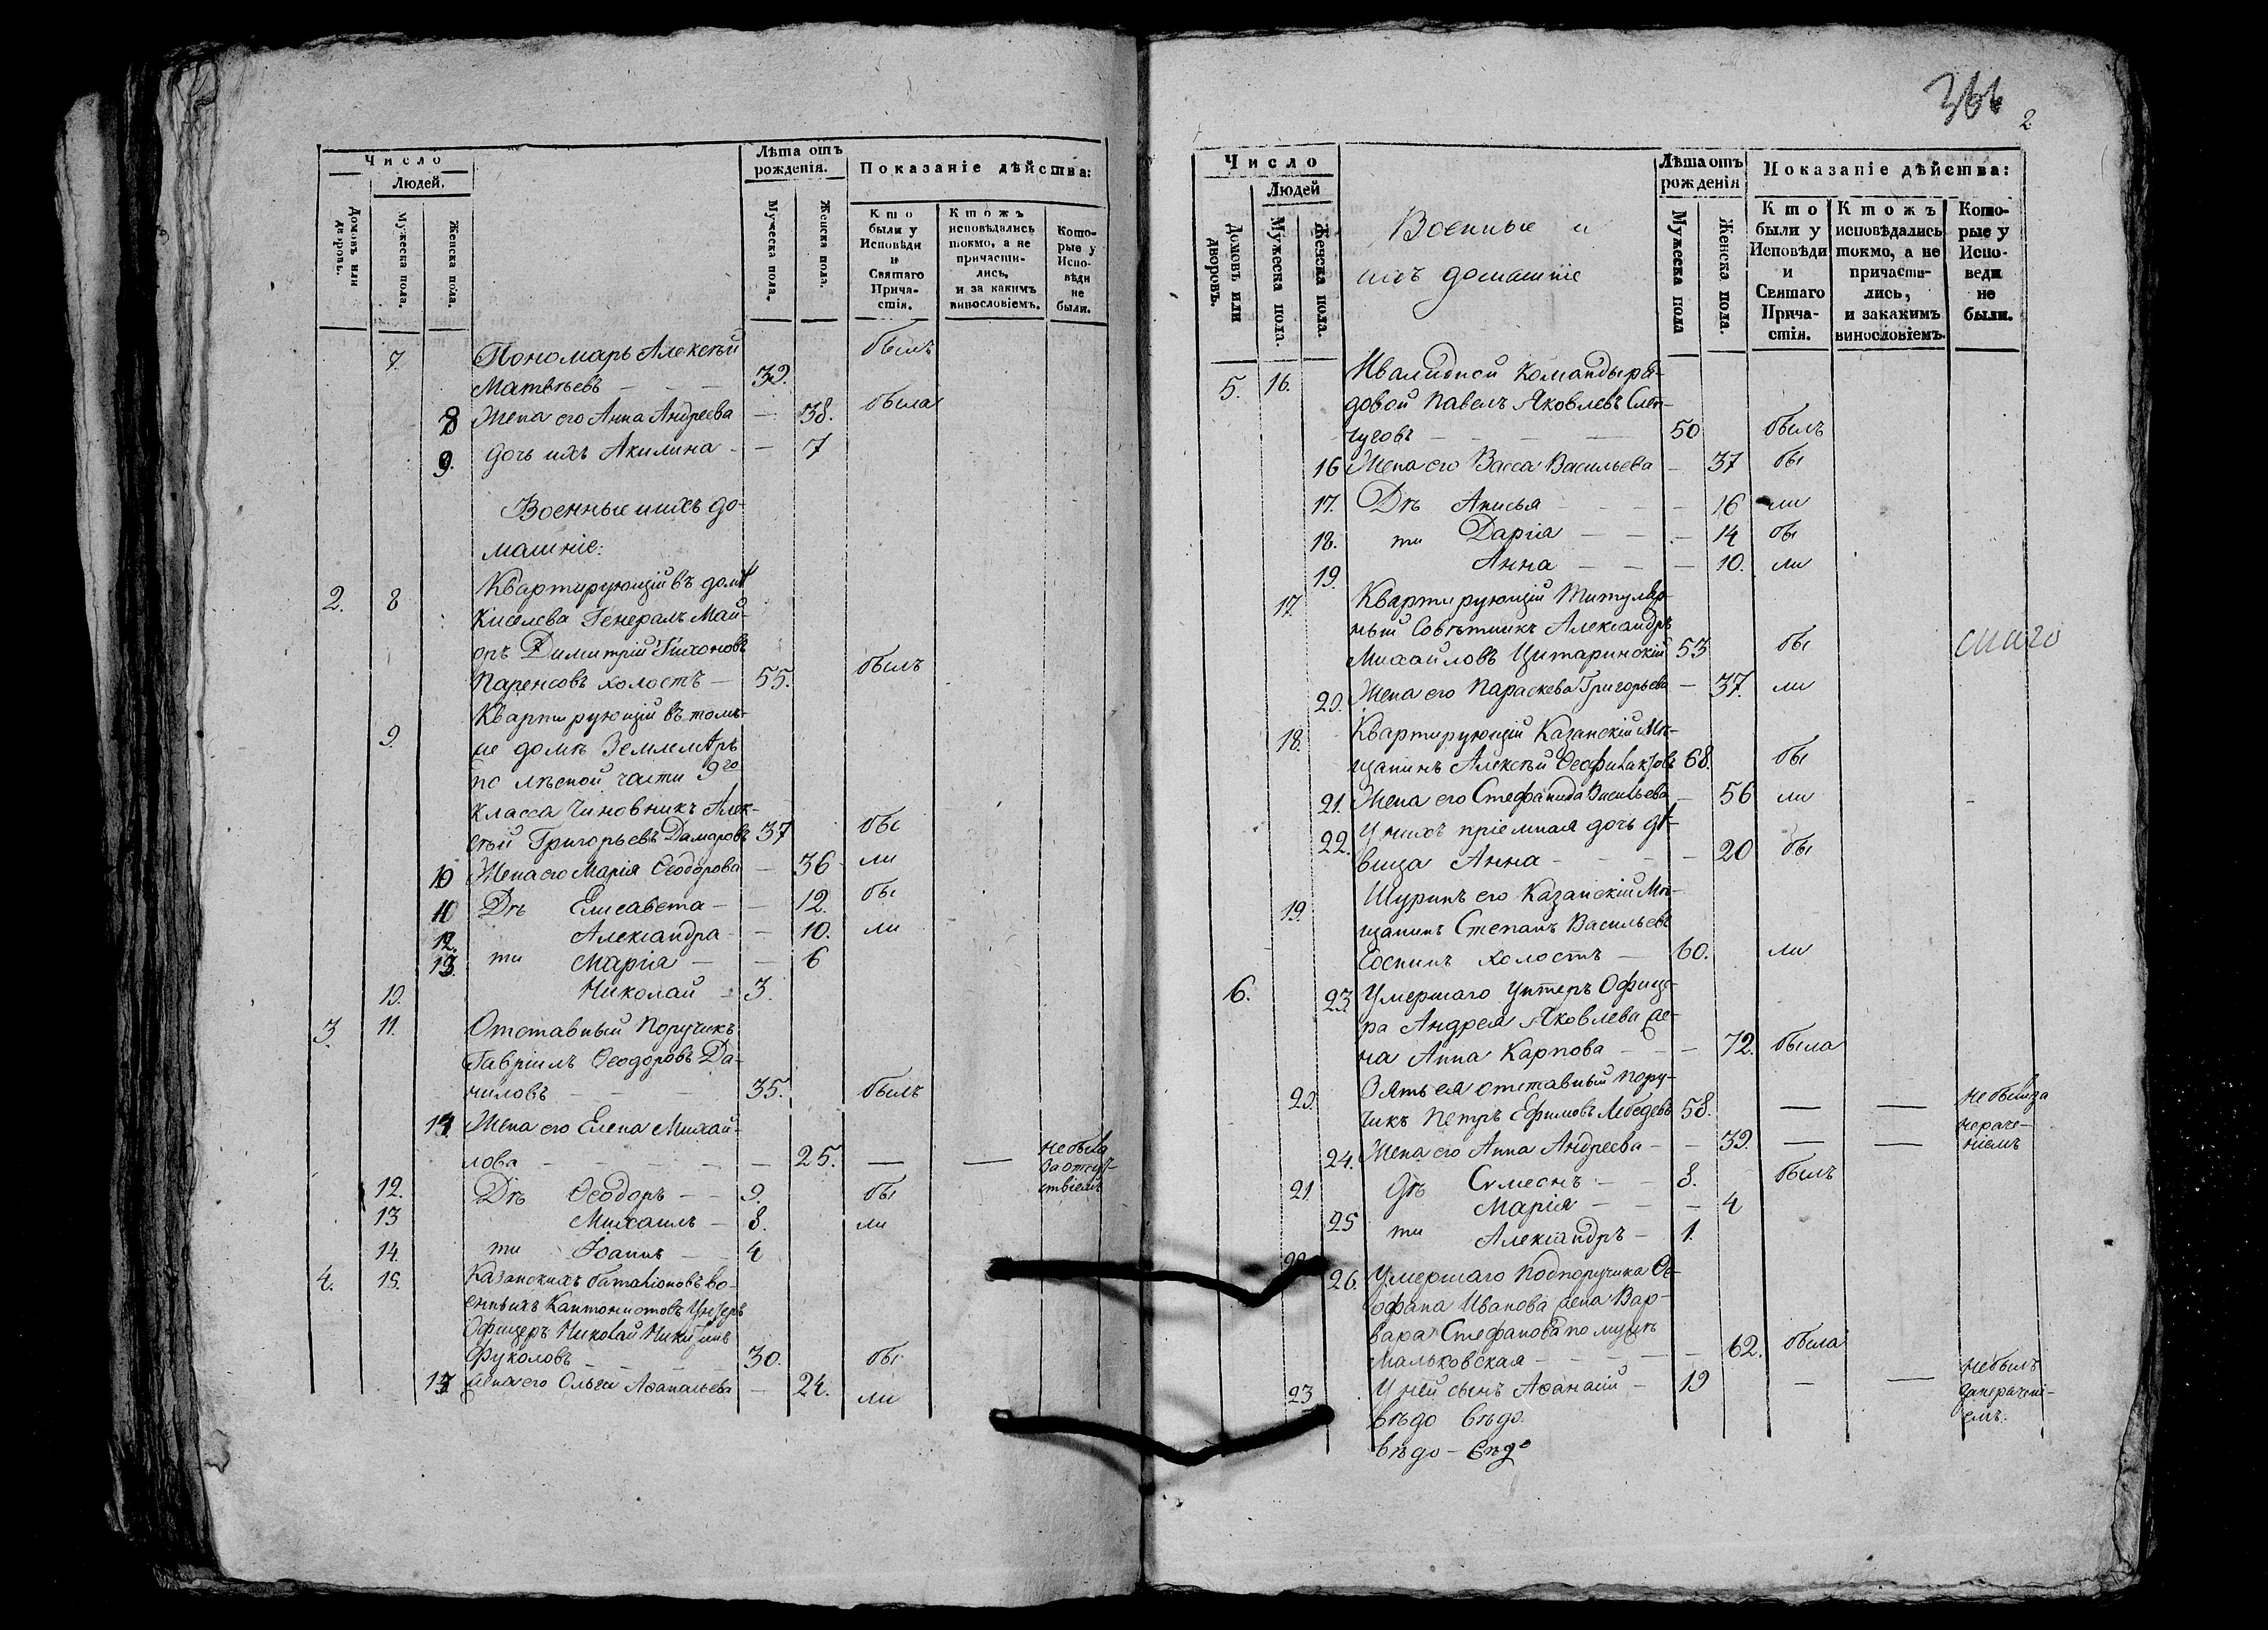 Число
Людей.
Домовъ или дворовъ.
Мужеска пола.
Женска пола.
Лѣта отъ рожденія.
Мужеска пола.
Женска пола.
Показаніе дѣйства:
Кто были у Исповѣди и Святаго Причастія.
Ктожъ исповѣдались токмо, а не причастились, и за какимъ винословіемъ.
Которые у Исповѣди не были.
7. Пономарь Алексѣй былъ
Матвѣевъ — — — 39.
8 Жена его Анна Андреева — 38. была
9. дочь ихъ Акилина — — 7
Военные и ихъ до-
машніе:
2. 8 Квартирующій въ домѣ
Киселева Генералъ Май-
оръ Димитрій Тихоновъ
Паренсовъ холостъ — 55. былъ
9. Квартирующій въ томъ-
же домѣ Землемѣръ
по лѣсной части 9го
класса Чиновникъ Алек-
сѣй Григорьевъ Дамаровъ 37 бы
10 Жена его Марія Ѳеодорова — 36 ли
11 Дѣ Елисавета — — 12. бы
12. Александра — — 10. ли
13. ти Марія — — 6
10. Николай — 3.
3. 11. Отставный Поручикъ
Гавріилъ Ѳеодоровъ Да-
ниловъ — — — 35. былъ
14. Жена его Елена Михай-
лова — — — — 25. — — не была
за отсут-
ствіемъ
12. Дѣ Ѳеодоръ — — 9. бы
13 Михаилъ — 8. ли
14. ти Іоаннъ — — 4
4. 15. Казанскихъ баталіоновъ во-
енныхъ Кантонистовъ Унтеръ
Офицеръ Николай Никитинъ
Фуколовъ — — — 30. бы
15 жена его Ольга Аѳанасьева — 24. ли
366
2
Число
Людей
Домовъ или дворовъ.
Мужеска пола.
Женска пола.
Военные и
ихъ домашніе
Лѣта отъ рожденія
Мужеска пола
Женска пола.
Показаніе дѣйства:
Кто были у Исповѣди и Святаго Причастія.
Ктожъ исповѣдались токмо, а не причастились, и закакимъ винословіемъ.
Которые у Исповеди не были.
5. 16. Ивалидной Команды ря-
довой Павелъ Яковлевъ Слеп-
чуговъ — — — — 50 былъ
16 Жена его Васса Васильева — 37 бы
17. Дѣ Анисья — — — 16 ли
18. ти Дарія — — — 14 бы
19. Анна — — — 10. ли
17. Квартирующій Титуляр-
ный Совѣтникъ Александръ
Михайловъ Цитаринскій 53 бы
20. Жена его Параскева Григорьева — 37. ли
18. Квартирующій Казанскій Мѣ-
щанинъ Алексѣй Ѳеофилактовъ 68. бы
21. Жена его Стефанида Васильева — 56 ли
22. У нихъ пріемная дочь дѣ-
вица Анна — — — — 20 бы
19. Шуринъ его Казанскій Мѣ-
щанинъ Степанъ Васильевъ
холостъ — 60. ли
6. 23 Умершаго Унтеръ Офице-
ра Андрея Яковлева же-
на Анна Карпова — — — 72. была
20. Зять ея отставный Пору-
чикъ Петръ Ефимовъ Лебедевъ 58. — — не были за
нераче-
ніемъ
24. Жена его Анна Андреева — — 39. — —
21. Дѣ Сѵмеонъ — — 8. былъ
25 ти Марія — — — 4
22 Александръ — 1.
26. Умершаго Подпоручика Ѳе-
офана Иванова жена Вар-
вара Стефанова по мужѣ
Мальковская — — — — 62. была
23 У ней сынъ Аѳанасій — 19 — — не былъ
за нерачені-
емъ.